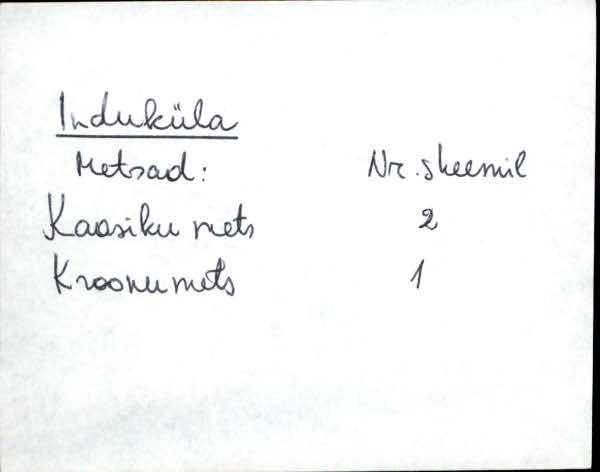 Induküla
Metsad: Nr. skeemil
Kaasiku mets 2
Kroonumets 1